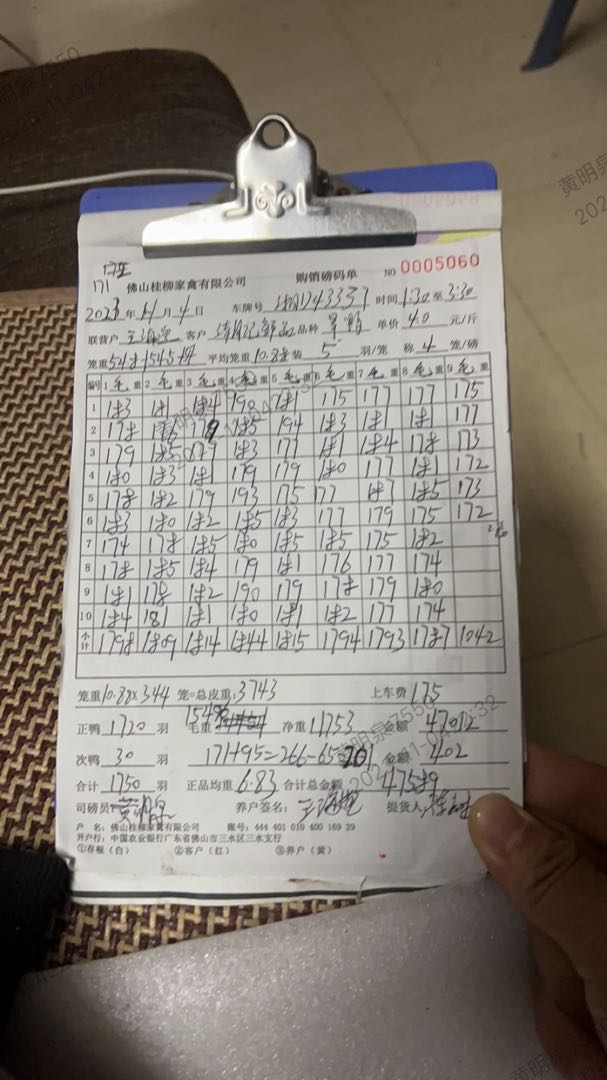 171
佛山桂柳家禽有限公司 购销磅码单 NO 0005060
2023年11月4日 车牌号 时间1:30至3:30
联营户 客户 品种 单价4.0元/斤
笼重 平均笼重10.88 装5羽/笼 称4笼/磅
编号 1毛重 2毛重 3毛重 4毛重 5毛重 6毛重 7毛重 8毛重 9毛重
1 183 181 184 190 181 175 177 177 175
2 178 179 185 194 183 181 181 177
3 179 185 179 183 177 181 184 178 173
4 180 183 181 179 179 180 177 181 172
5 178 182 179 193 175 177 187 185 173
6 183 180 182 185 183 177 179 175 172
7 174 178 185 180 185 185 175 182
8 178 185 184 179 181 176 177 174
9 181 178 182 190 179 178 179 180
10 184 181 181 180 181 182 177 174
小计 1798 1809 1814 1844 1815 1794 1793 1787 1042
笼重10.88×344 笼=总皮重:3743 上车费 175
正鸭 1720 羽 毛重 15496 净重 11753 金额 47012
次鸭 30 羽 171+95=266-65=201 金额 402
合计 1750 羽 正品均重 6.83 合计总金额 47589
司磅员: 黄明泉 养户签名: 提货人
户 名:佛山桂柳家禽有限公司 账号:444 401 010 400 169 29
开户行:中国农业银行广东省佛山市三水区三水支行
①存根(白) ②客户(红) ③养户(黄)
黄明泉7550